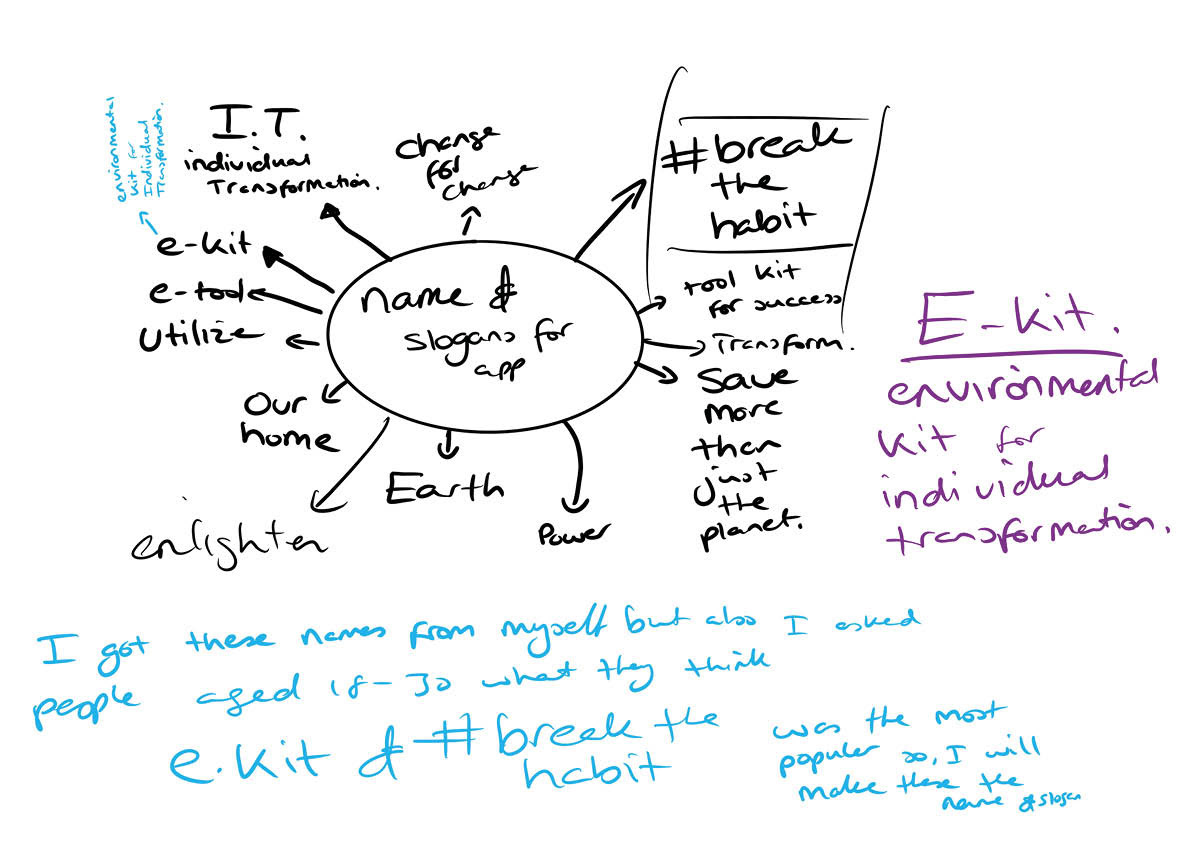 environmental
kit for
Individual
Transformation.
I.T.
individual
Transformation.
change
for
change
#break
the
habit
e-kit
e-tool
utilize
Our
home
enlighten
Earth
Power
name &
slogans for
app
tool kit
for success
Transform.
Save
more
than
just
the
planet.
E-kit.
environmental
kit for
individual
transformation.
I got these names from myself but also I asked
people aged 18-30 what they think
e.kit & #break the
habit
was the most
populer so, I will
make these the
name & slogan